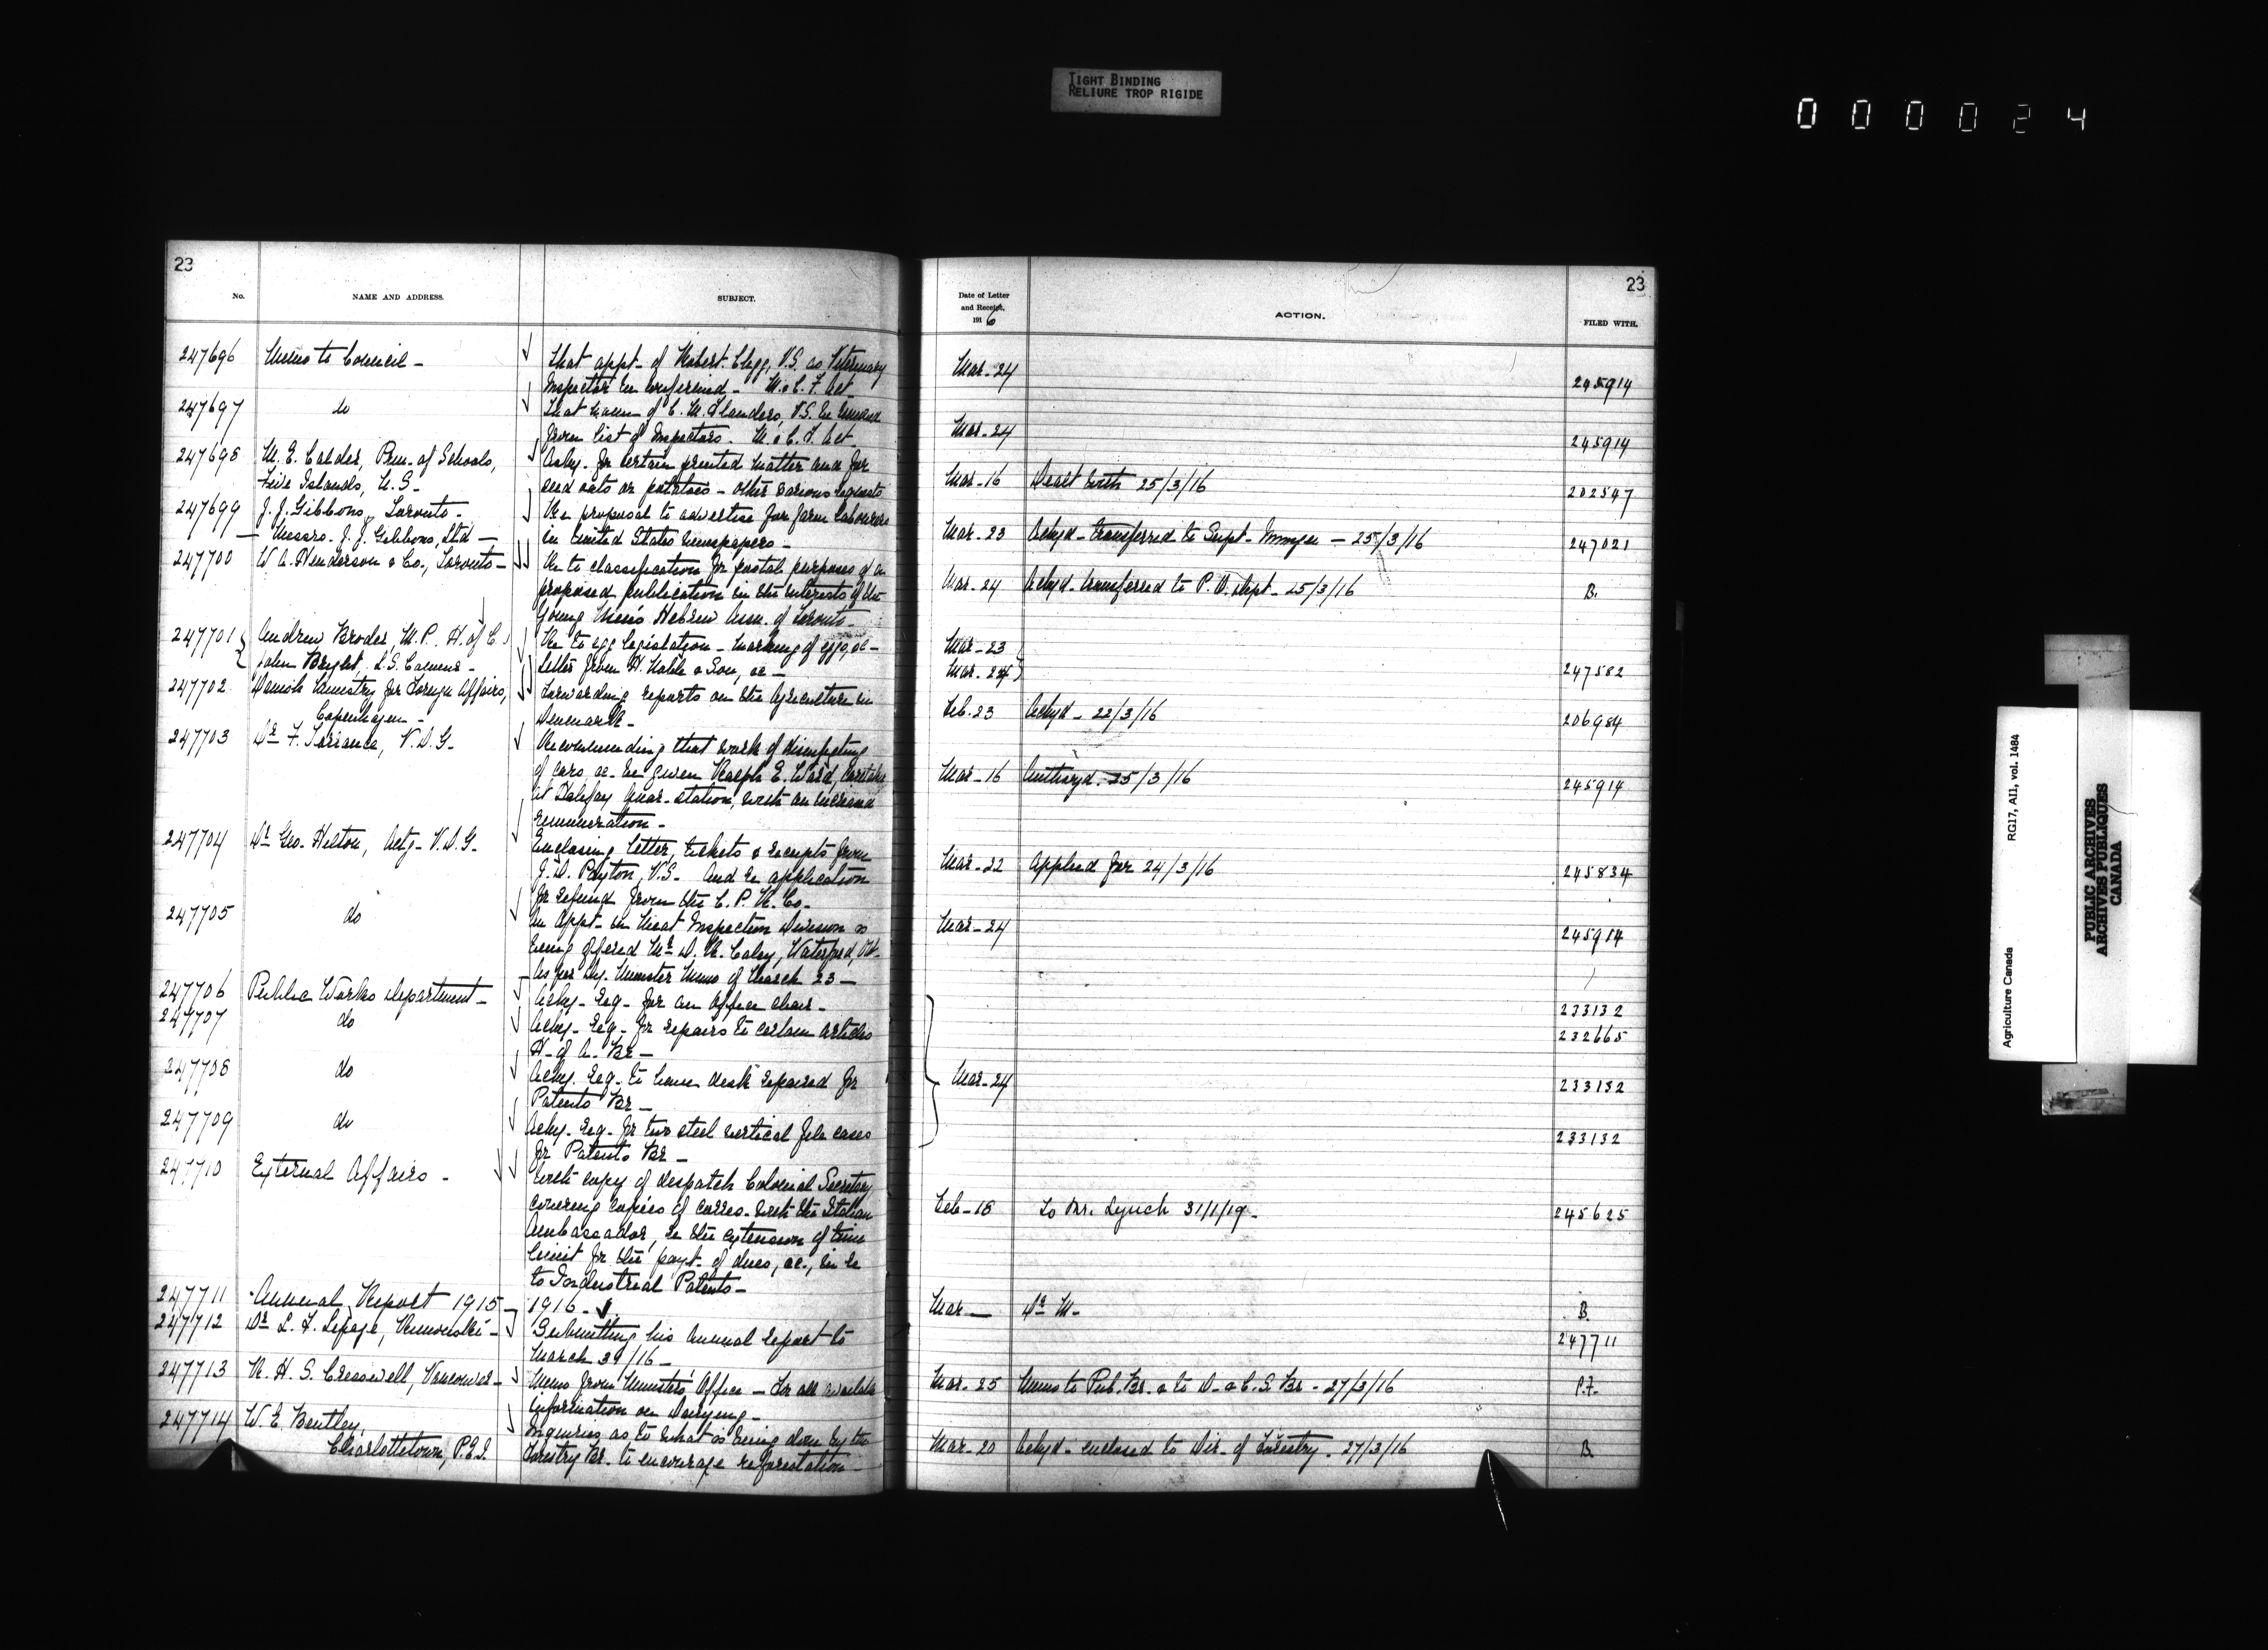 TIGHT BINDING
RELIURE TROP RIGIDE
000024
23
No. NAME AND ADDRESS. SUBJECT.
247696 Memo to Council - That appt. of Robert Clegg, V.S. as Veterinary
Inspector be confirmed - M. & C. F. Act
247697 do That name of C. M. Flanders, V.S. be removed
from list of Inspectors. M. & C. F. Act
247698 M. E. Calder, Prin. of Schools, Asky. for certain printed matter and for
Five Islands, N.S. - seed oats or potatoes - other various requests
247699 J. J. Gibbons, Toronto - Re proposal to advertise for farm labourers
Messrs. J. J. Gibbons, Ltd - in United States newspapers -
247700 W. A. Henderson & Co., Toronto - Re to classification for postal purposes of a
proposed publication in the interests of the
Young Men's Hebrew Assn. of Toronto -
247701 Andrew Broder, M.P. H. of C. Re to egg legislation - marking of eggs, &c -
John Bright, L.S. Commr - letter from H. & Son, &c -
247702 Danish Ministry for Foreign Affairs, Forwarding reports on the Agriculture in
Copenhagen - Denmark -
247703 Dr F. Torrance, V.D.G. Recommending that work of disinfecting
of cars &c. be given Ralph E. Ward, Caretaker
at Halifax Quar. station, with an increased
remuneration -
247704 Dr Geo. Hilton, Actg. V.D.G. Enclosing letter, tickets & receipts from
J. D. Payton, V.S. And re application
for refund from the C. P. R. Co.
247705 do An Appt. in Meat Inspection Division is
being offered Mr D. R. Caley, Waterford, Ont.
As per Dy. Minister Memo of March 23 -
247706 Public Works Department - Ackg. Req. for an office chair -
247707 do Ackg. Req. for repairs to certain articles
H. of A. Br -
247708 do Ackg. Req. to have desk repaired for
Patents Br -
247709 do Ackg. Req. for two steel vertical file cases
for Patents Br -
247710 External Affairs - With copy of despatch Colonial Secretary,
covering copies of corres. with the Italian
Ambassador, re the extension of time
limit for the payt. of dues, &c., in re
to Industrial Patents -
247711 Annual Report 1915 - 1916 -
247712 Dr L. F. Lepage, Rimouski - Submitting his Annual Report to
March 31/16 -
247713 R. H. S. Cresswell, Vancouver - Memo from Minister's Office - For all available
information on Dairying -
247714 W. E. Bentley, Inquiries as to what is being done by the
Charlottetown, P.E.I. Forestry Br. to encourage reforestation -
23
Date of Letter
and Receipt,
1916
ACTION. FILED WITH.
Mar. 24 245914
Mar. 24 245914
Mar. 16 Dealt with 25/3/16 202547
Mar. 23 Ackgd - transferred to Supt. Immgn - 25/3/16 247021
Mar. 24 Ackgd - transferred to P. O. Dept - 25/3/16 B.
Mar - 23
Mar. 24 247582
Feb. 23 Ackgd - 22/3/16 206984
Mar. 16 Authzd. 25/3/16 245914
Mar. 22 Applied for 24/3/16 245834
Mar. 24 245914
233132
232665
Mar. 24 233132
233132
Feb - 18 To Mr. Lynch 31/1/19 - 245625
Mar - Dr M - B
247711
Mar. 25 Memo to Pub. Br. & to D. & C. S. Br - 27/3/16 P.F.
Mar. 20 Ackgd - enclosed to Dir. of Forestry. 27/3/16 B
Agriculture Canada RG17, AII, vol. 1484
PUBLIC ARCHIVES
ARCHIVES PUBLIQUES
CANADA